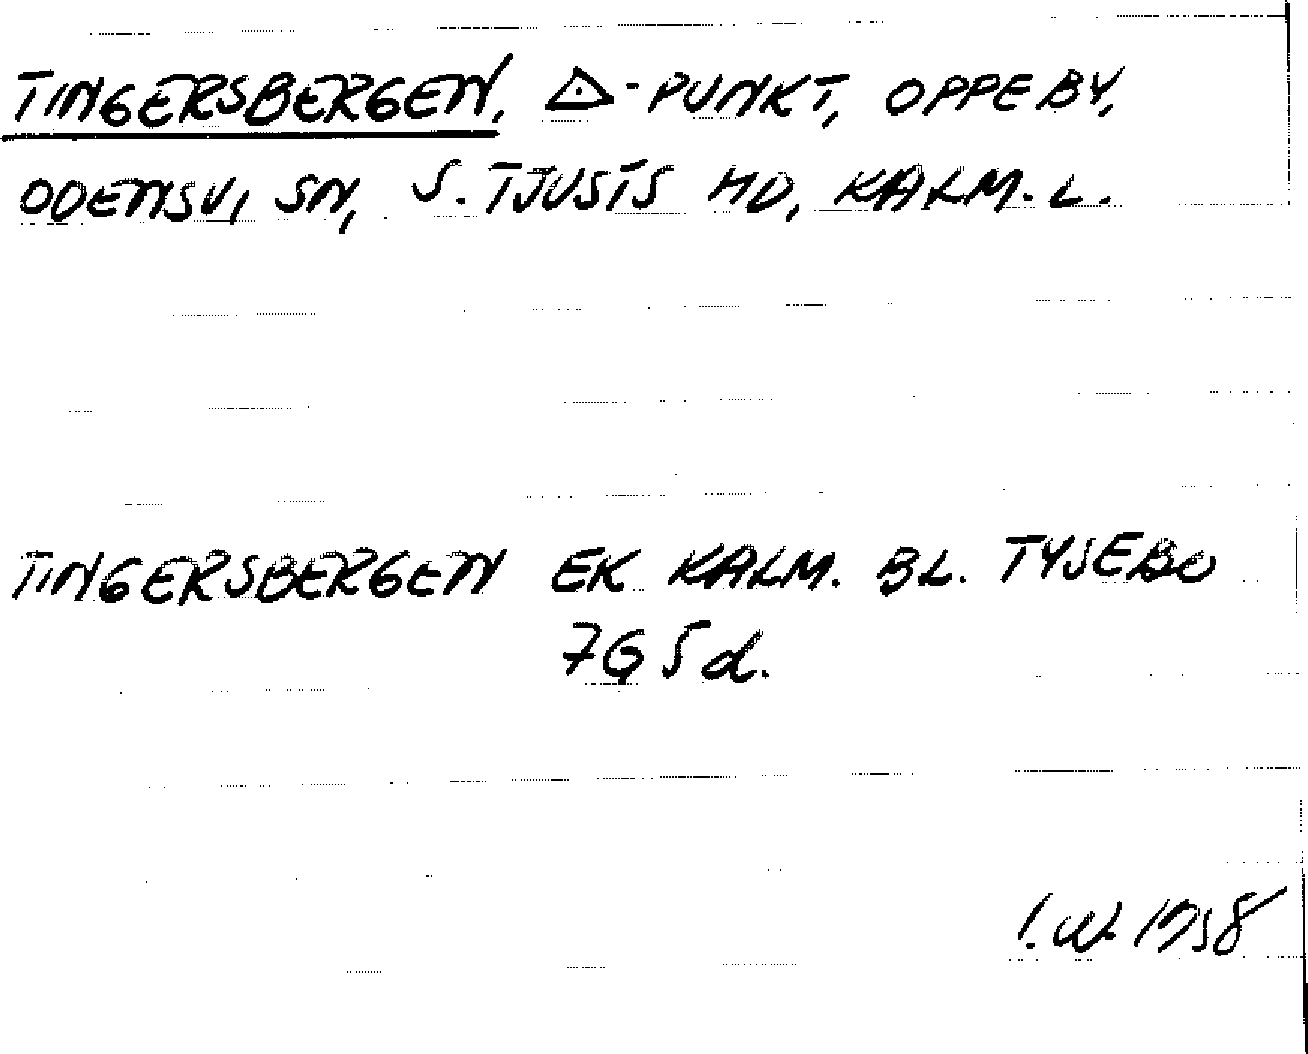 TINGERSBERGEN, △-PUNKT, OPPEBY,
ODENSVI SN, S. TJUSTS HD, KALM. L.
TINGERSBERGEN EK KALM. BL. TYSEBO
7G 5d.
1958